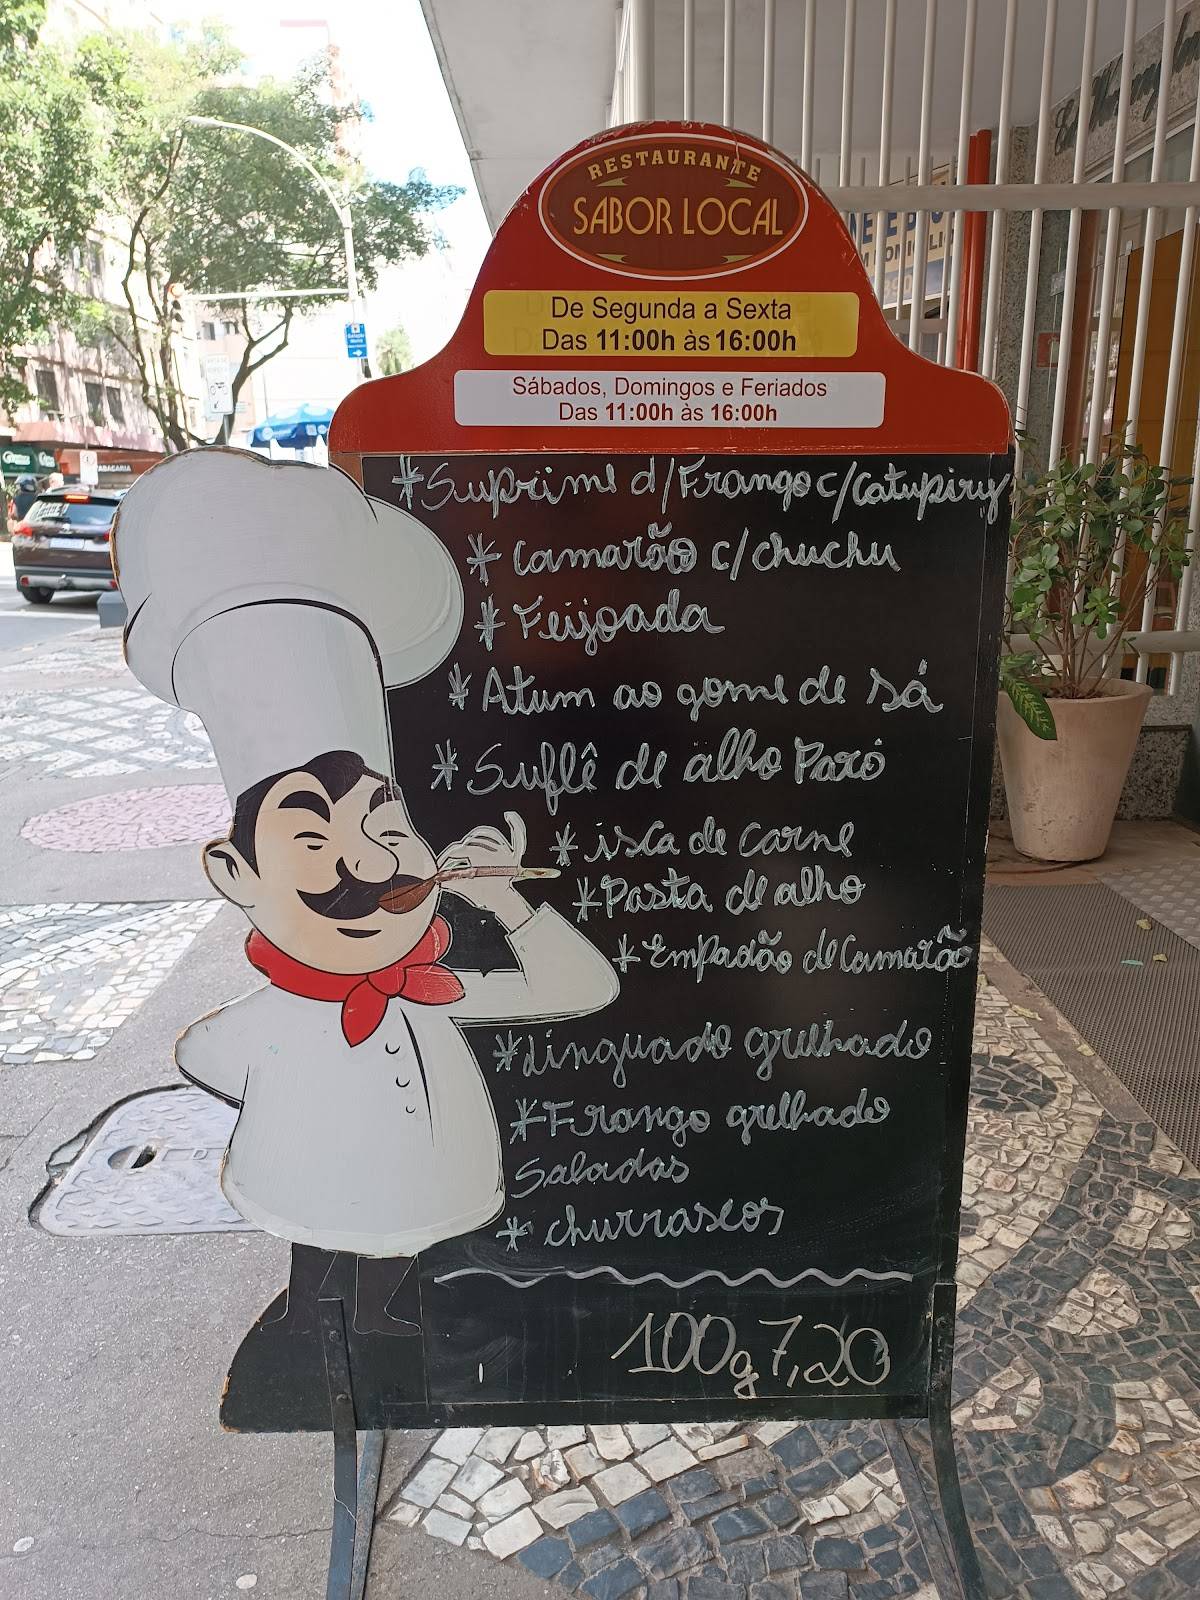 RESTAURANTE
SABOR LOCAL
De Segunda a Sexta
Das 11:00h às 16:00h
Sábados, Domingos e Feriados
Das 11:00h às 16:00h
*Suprime d/Frango c/Catupiry
* Camarão c/chuchu
* Feijoada
* Atum ao gome de sá
* Suflê de alho Paró
* isca de carne
* Pasta de alho
* Empadão de Camarão
*Linguado grelhado
*Frango grelhado
Saladas
* churrascos
100g 7,20
TABACARIA